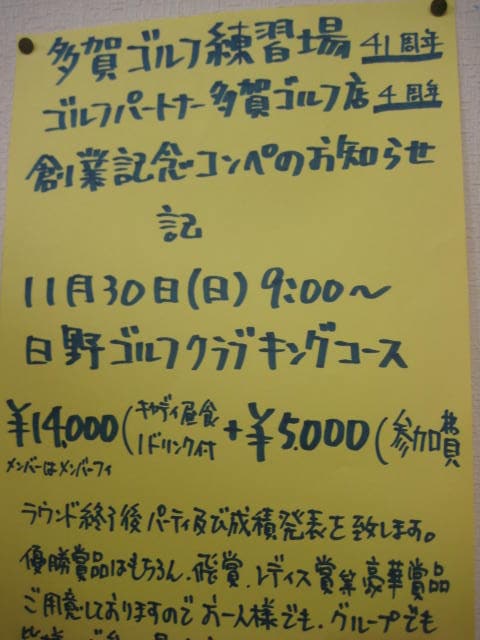 多賀ゴルフ練習場 41周年
ゴルフパートナー多賀ゴルフ店 4周年
創業記念コンペのお知らせ
記
11月30日(日) 9:00〜
日野ゴルフクラブキングコース
¥14,000(キャディ昼食 1ドリンク付 + ¥5,000(参加費
メンバーはメンバーフィ
ラウンド終了後パーティ及び成績発表を致します。
優勝賞品はもちろん、飛賞、レディス賞等豪華賞品
ご用意しておりますのでお一人様でも、グループでも